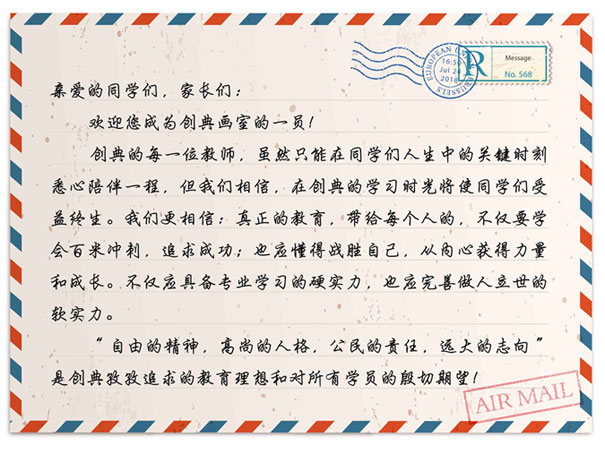 EUROPEAN
16:50
Jul 24
2018
BRUSSELS
R
Message.
No. 568
亲爱的同学们，家长们：
欢迎您成为创典画室的一员！
创典的每一位教师，虽然只能在同学们人生中的关键时刻
悉心陪伴一程，但我们相信，在创典的学习时光将使同学们受
益终生。我们更相信：真正的教育，带给每个人的，不仅要学
会百米冲刺，追求成功；也应懂得战胜自己，从内心获得力量
和成长。不仅应具备专业学习的硬实力，也应完善做人立世的
软实力。
“自由的精神，高尚的人格，公民的责任，远大的志向”
是创典孜孜追求的教育理想和对所有学员的殷切期望！
AIR MAIL